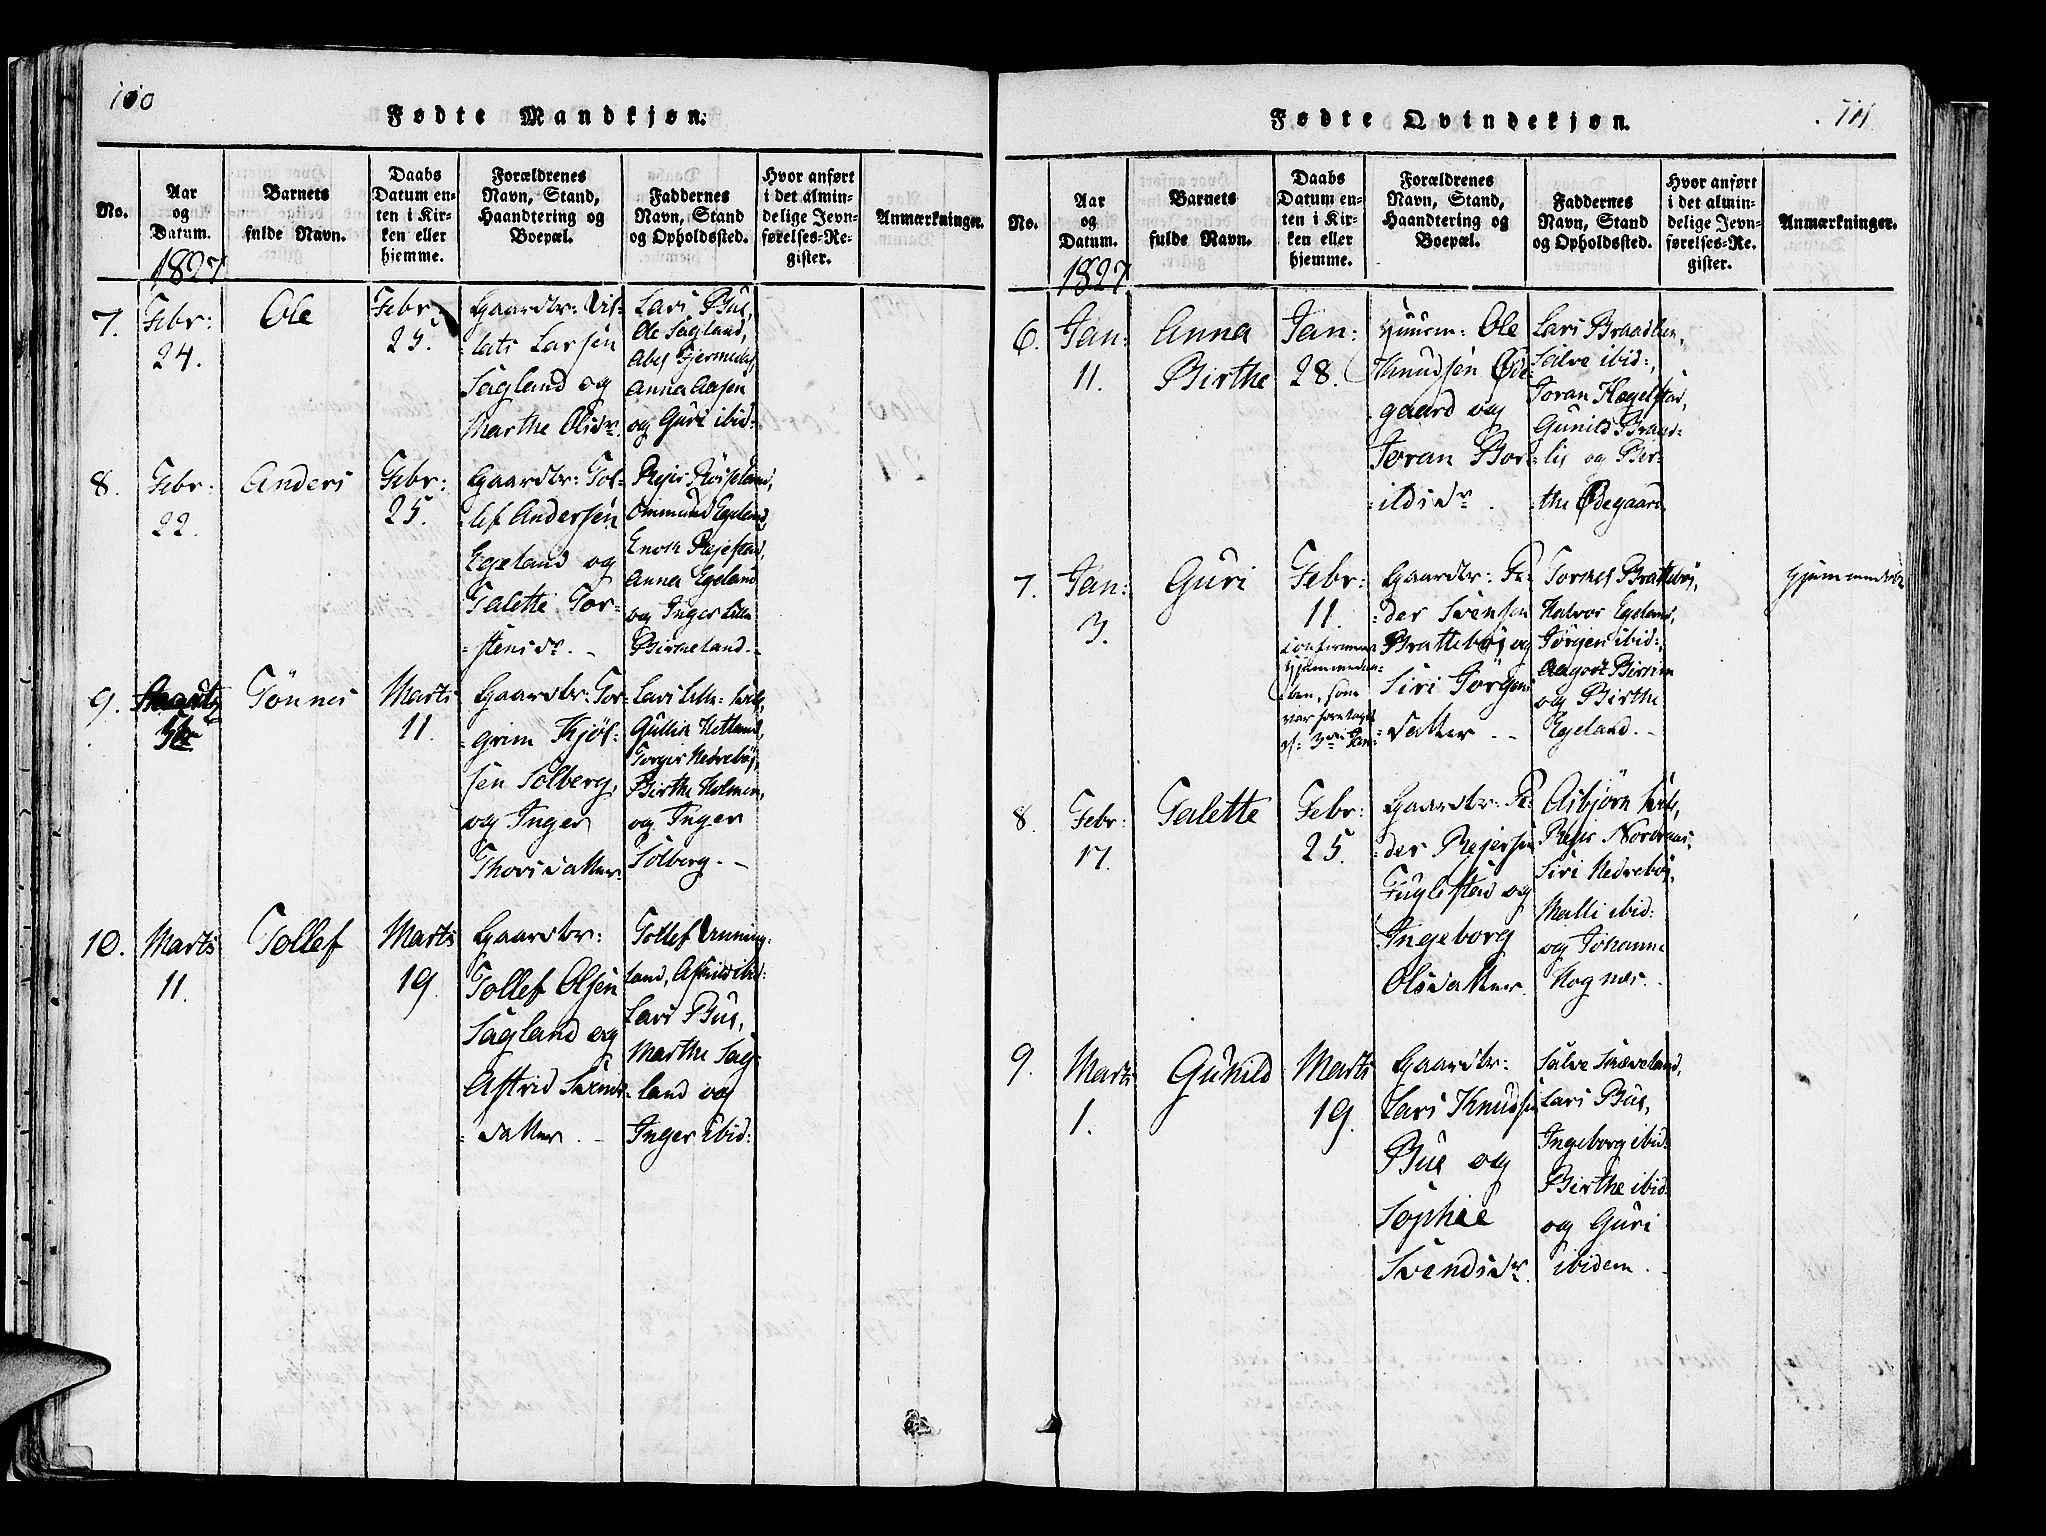 100
Fødte Mandkjøn.
No.
Aar
og
Datum.
Barnets
fulde Navn.
Daabs
Datum en-
ten i Kir-
ken eller
hjemme.
Forældrenes
Navn, Stand,
Haandtering og
Boepæl.
Faddernes
Navn, Stand
og Opholdssted.
Hvor anført
i det almin-
delige Jevn-
førelses-Re-
gister.
Anmærkninger.
1827
7.
Febr:
24.
Ole
Febr:
25.
Gaardbr:
Larsen
Sagland og
Marthe Olsdr.
Lars Bue,
Ole Sagland,
Anna Aasen
og Guri ibid:
8.
Febr:
22.
Anders
Febr:
25.
Gaardbr: Tol-
lef Andersen
Egeland og
Talette Tor-
stensdr. -
Rejer
Ommund Egeland,
Enok Rejestad,
Anna Egeland
og Inger Lille
Birkeland. -
9.
Tønnes
Marts
11.
Gaardbr: Tor-
grim Kjøl-
sen Solberg,
og Inger
Thorsdatter.
Lars
Gullik Hetland,
Torger Nedrebøe,
Birthe Holmen,
og Inger
Solberg. -
10.
Marts
11.
Tollef
Marts
19.
Gaardbr:
Tollef Olsen
Sagland og
Astrid Svends-
datter. -
Tollef
land, Astrid ibid:
Lars Bue,
Marthe Sag-
land og
Inger ibid:
111.
Fødte Qvindekjøn.
No.
Aar
og
Datum.
Barnets
fulde Navn.
Daabs
Datum en-
ten i Kir-
ken eller
hjemme.
Forældrenes
Navn, Stand,
Haandtering og
Boepæl.
Faddernes
Navn, Stand
og Opholdssted.
Hvor anført
i det almin-
delige Jevn-
førelses-Re-
gister.
Anmærkninger.
1827
6.
Jan:
11.
Anna
Birthe
Jan:
28.
Huusm: Ole
Knudsen Øde-
gaard og
Joran Bor-
ildsdr.
Lars Braadlie,
Salve ibid:,
Joran Hegelstad,
Gunild Braad-
lie og Bir-
the Ødegaard.
7.
Jan:
3.
Guri
Febr:
11.
Gaardbr: Pe-
der Svensen
Brattebøe og
Siri Jørgens-
datter. -
Tornes Brattebøe,
Halvor Egeland,
Jørgen ibid:,
og Birthe
Egeland. -
8.
Febr:
17.
Talette
Febr:
25.
Gaardbr: Pe-
der Rejersen
Fuglestad og
Ingeborg
Olsdatter.
Asbjørn
Rejer
Siri Nedrebøe,
Malli ibid:
og Johanne
Hognæs.
9.
Marts
1.
Gunild
Marts
19.
Gaardbr:
Lars Knudsen
Bue og
Sophie
Svendsdr.
Salve
Lars Bue,
Ingeborg ibid:
Birthe ibid:
og Guri
ibidem.